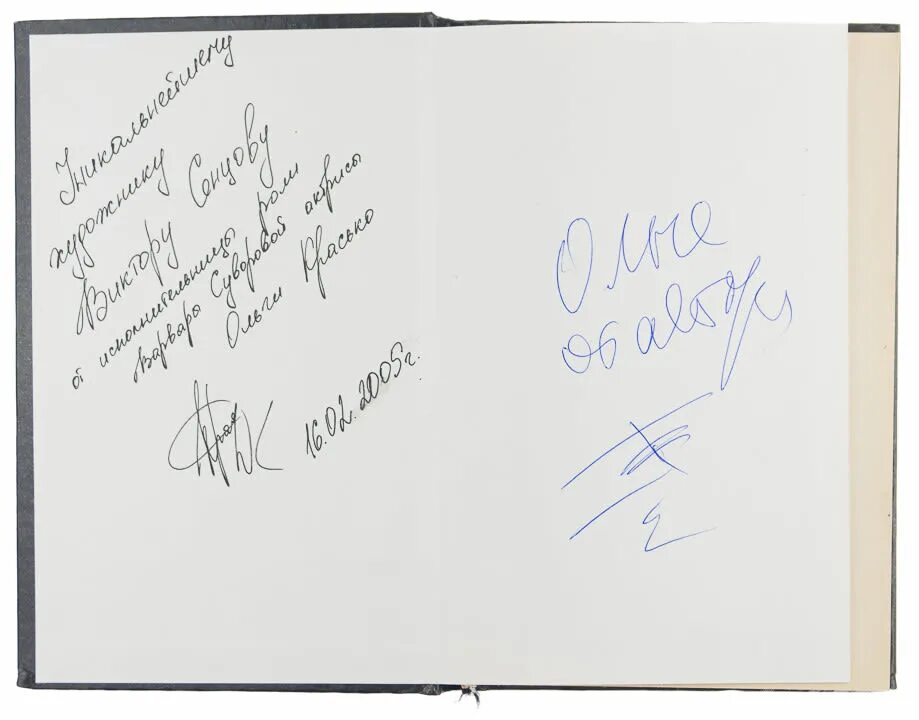 Уникальнейшему
художнику
Виктору Сенцову
от исполнительницы роли
Варвары Суворовой актрисы
Ольги Красько
16.02.2005г.
Ольге
от автора